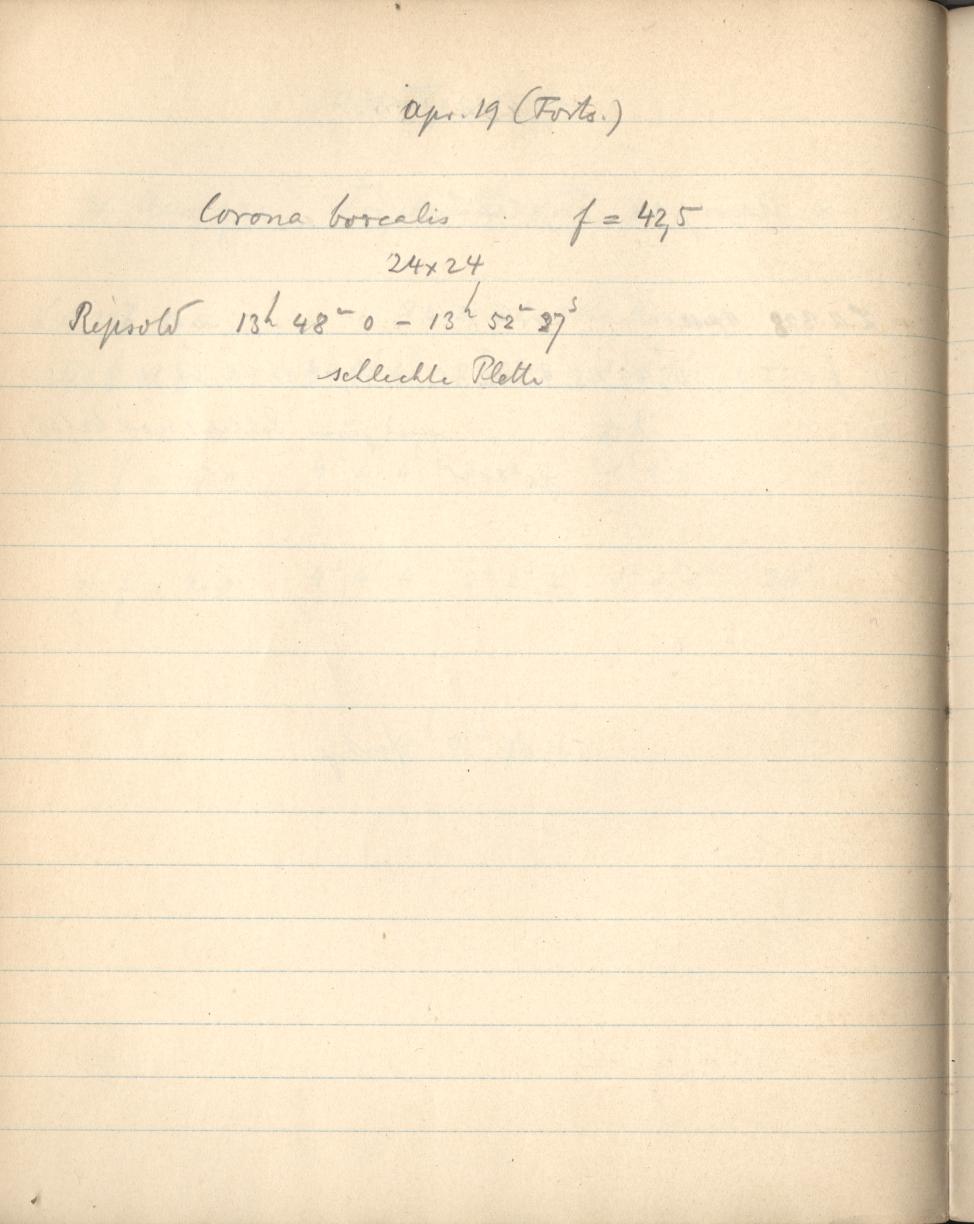 Apr. 19 (Forts.)
Corona borealis . f = 42,5
24x24
Repsold 13h 48m 0 – 13h 52m 37s
schlechte Platte